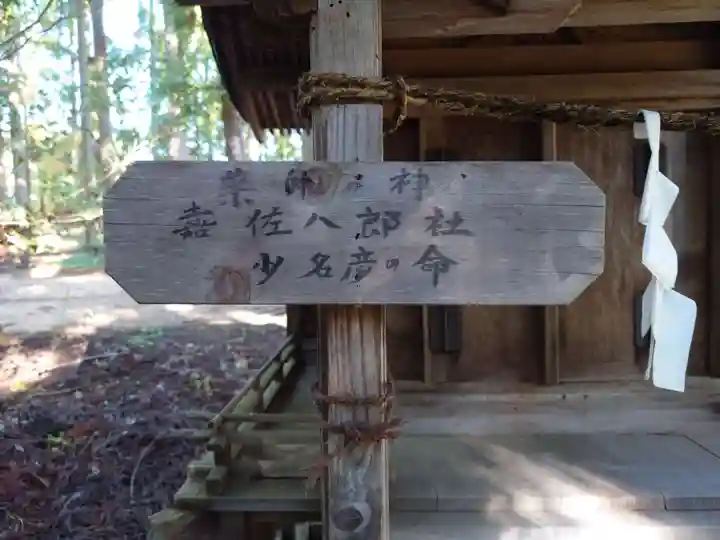 薬師の神
嘉佐八郎社
少名彦の命